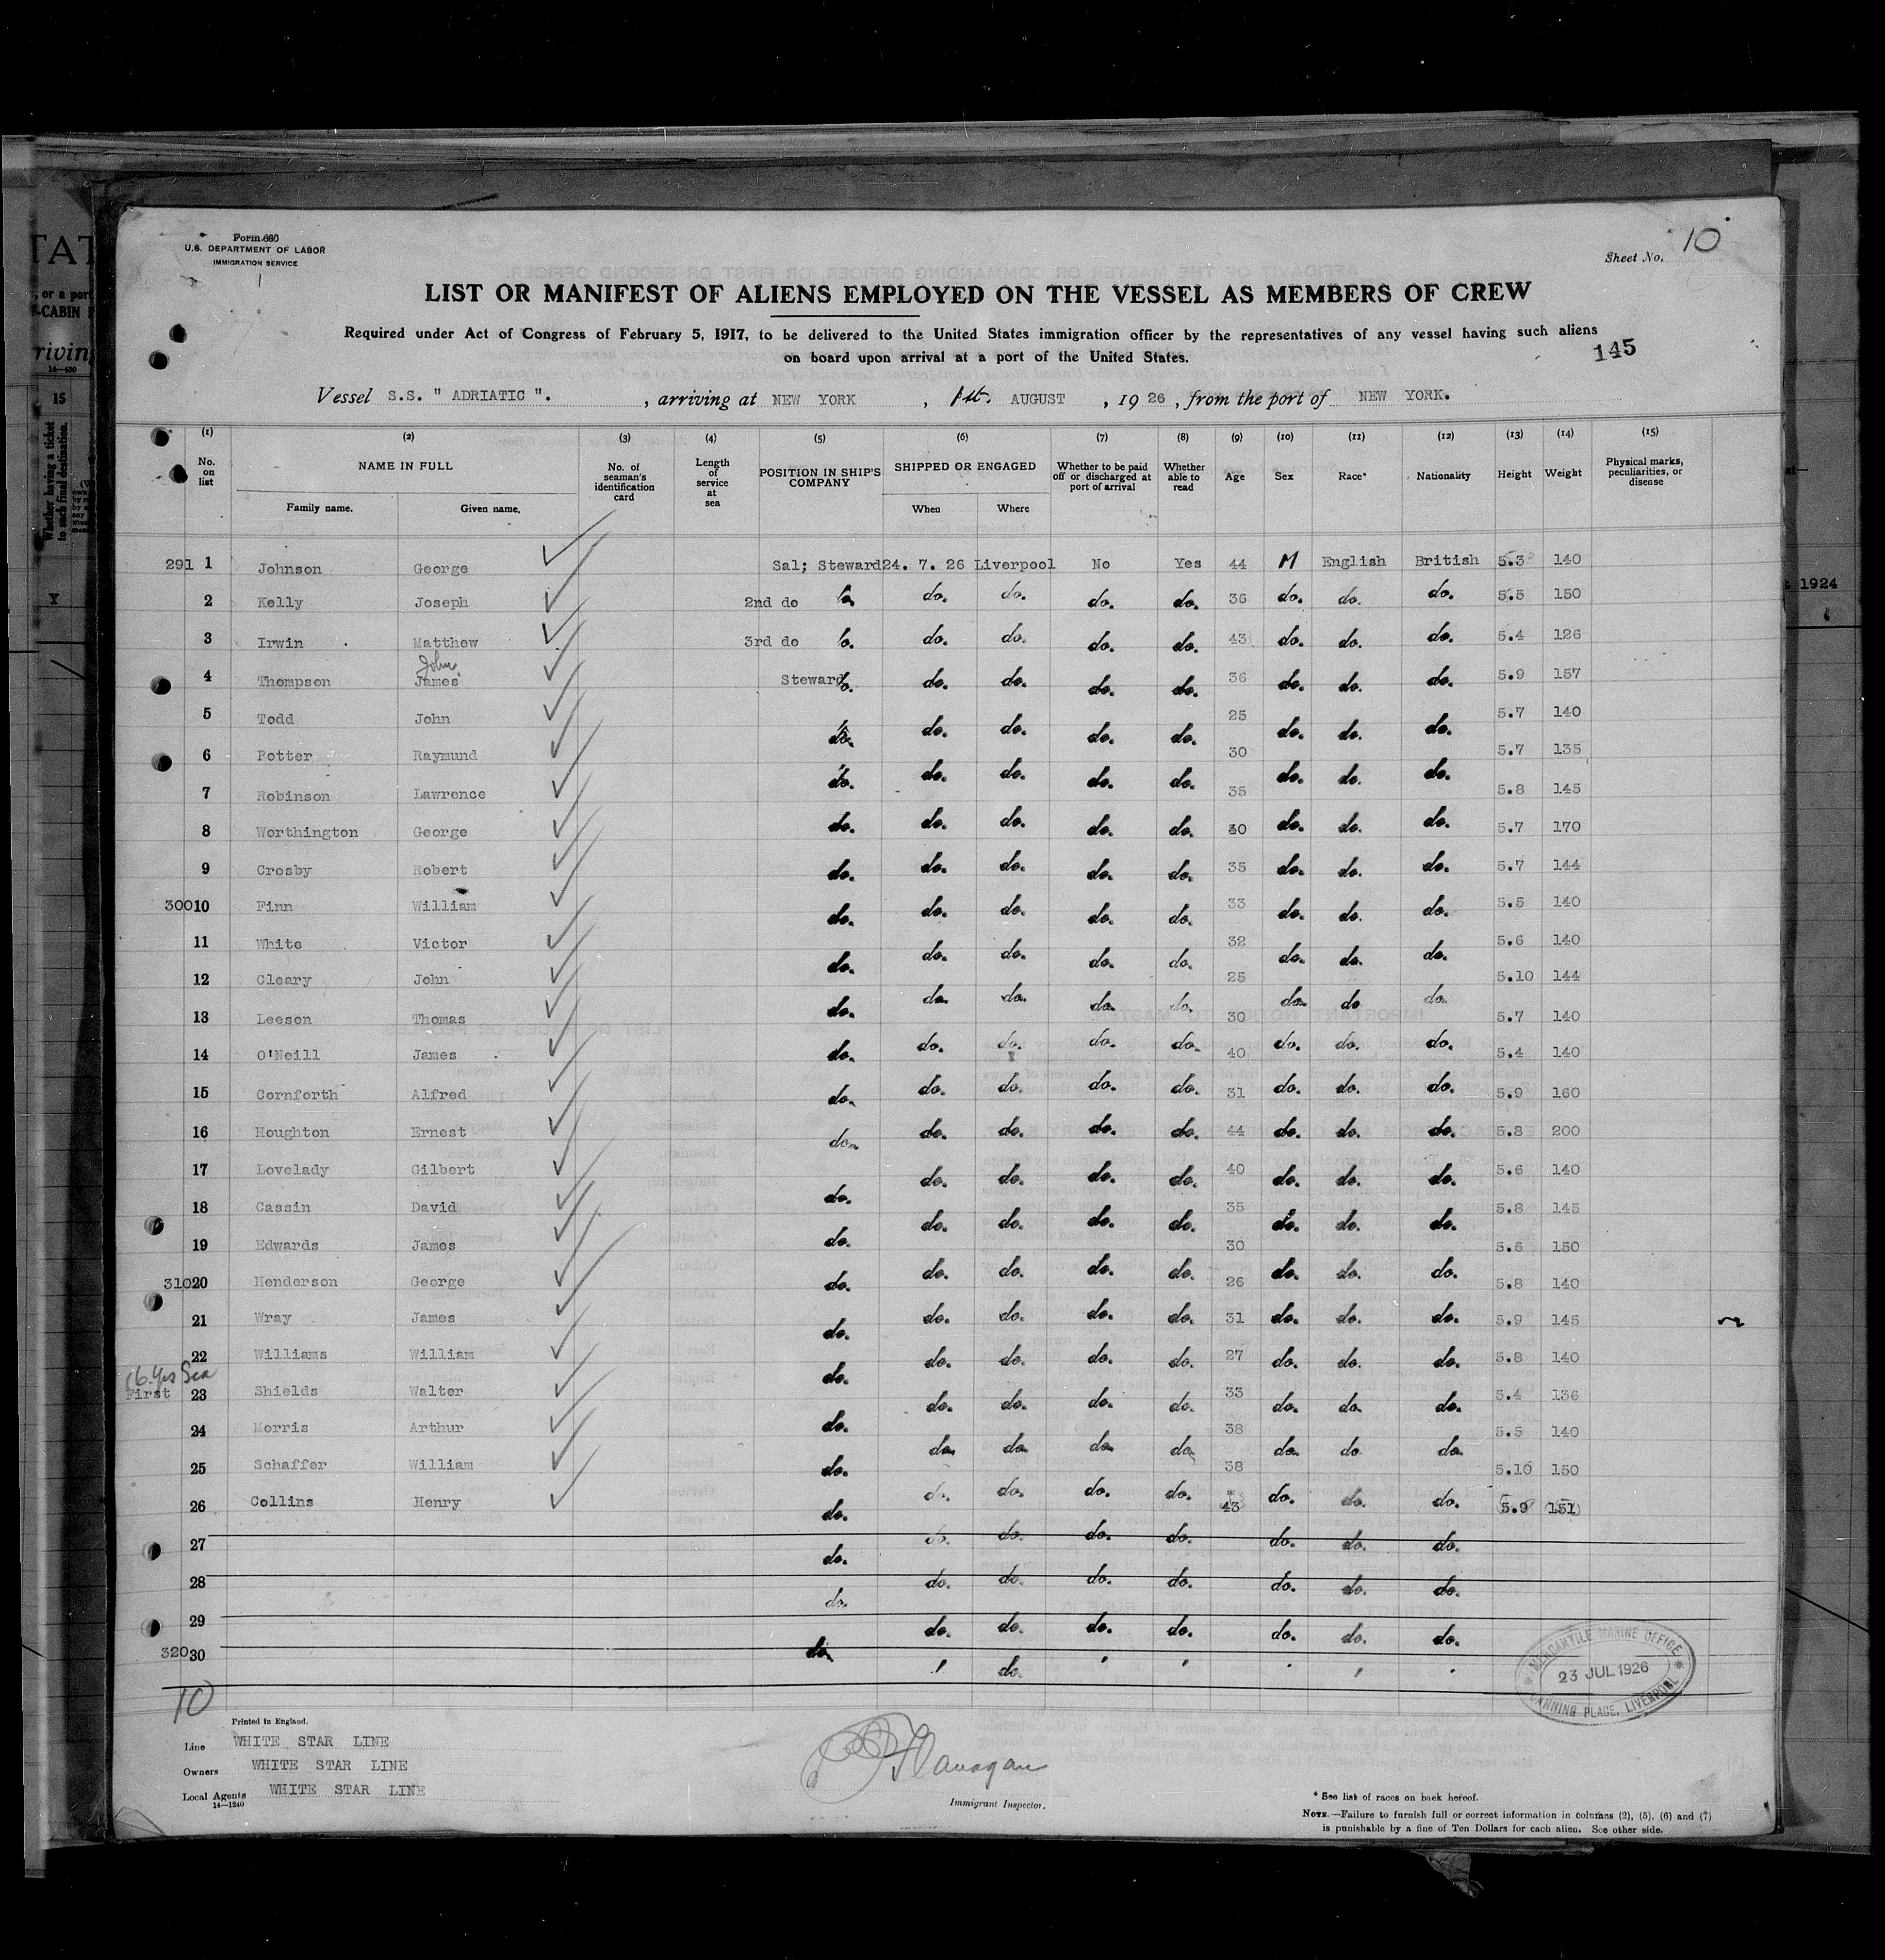 Form 680
U.S. DEPARTMENT OF LABOR
IMMIGRATION SERVICE
Sheet No. 10
LIST OR MANIFEST OF ALIENS EMPLOYED ON THE VESSEL AS MEMBERS OF CREW
Required under Act of Congress of February 5, 1917, to be delivered to the United States immigration officer by the representatives of any vessel having such aliens
on board upon arrival at a port of the United States.
145
Vessel S.S. " ADRIATIC ". , arriving at NEW YORK , 1st. AUGUST , 19 26 , from the port of NEW YORK.
(1) (2) (3) (4) (5) (6) (7) (8) (9) (10) (11) (12) (13) (14) (15)
No. on list NAME IN FULL Family name. Given name. No. of seaman's identification card Length of service at sea POSITION IN SHIP'S COMPANY SHIPPED OR ENGAGED When Where Whether to be paid off or discharged at port of arrival Whether able to read Age Sex Race* Nationality Height Weight Physical marks, peculiarities, or disease
291 1 Johnson George Sal; Steward 24. 7. 26 Liverpool No Yes 44 M English British 5.3 140
2 Kelly Joseph 2nd do do. do. do. do. do. 36 do. do. do. 5.5 150
3 Irwin Matthew 3rd do do. do. do. do. do. 43 do. do. do. 5.4 126
John
4 Thompson James Steward do. do. do. do. do. 36 do. do. do. 5.9 157
5 Todd John do. do. do. do. do. 25 do. do. do. 5.7 140
6 Potter Raymund do. do. do. do. do. 30 do. do. do. 5.7 135
7 Robinson Lawrence do. do. do. do. do. 35 do. do. do. 5.8 145
8 Worthington George do. do. do. do. do. 30 do. do. do. 5.7 170
9 Crosby Robert do. do. do. do. do. 35 do. do. do. 5.7 144
300 10 Finn William do. do. do. do. do. 33 do. do. do. 5.5 140
11 White Victor do. do. do. do. do. 32 do. do. do. 5.6 140
12 Cleary John do. do. do. do. do. 25 do. do. do. 5.10 144
13 Leeson Thomas do. do. do. do. do. 30 do. do. do. 5.7 140
14 O'Neill James do. do. do. do. do. 40 do. do. do. 5.4 140
15 Cornforth Alfred do. do. do. do. do. 31 do. do. do. 5.9 160
16 Houghton Ernest do. do. do. do. do. 44 do. do. do. 5.8 200
17 Lovelady Gilbert do. do. do. do. do. 40 do. do. do. 5.6 140
18 Cassin David do. do. do. do. do. 35 do. do. do. 5.8 145
19 Edwards James do. do. do. do. do. 30 do. do. do. 5.6 150
310 20 Henderson George do. do. do. do. do. 26 do. do. do. 5.8 140
21 Wray James do. do. do. do. do. 31 do. do. do. 5.9 145
22 Williams William do. do. do. do. do. 27 do. do. do. 5.8 140
6 yrs Sea
First 23 Shields Walter do. do. do. do. do. 33 do. do. do. 5.4 136
24 Morris Arthur do. do. do. do. do. 38 do. do. do. 5.5 140
25 Schaffer William do. do. do. do. do. 38 do. do. do. 5.10 150
26 Collins Henry do. do. do. do. do. 43 do. do. do. 5.9 151
27 do. do. do. do. do. do. do. do.
28 do. do. do. do. do. do. do. do.
29 do. do. do. do. do. do. do.
320 30 do. do.
10
MERCANTILE MARINE OFFICE
23 JUL 1926
CANNING PLACE, LIVERPOOL
Printed in England.
Line WHITE STAR LINE
Owners WHITE STAR LINE
Local Agents WHITE STAR LINE
14—1240
Flanagan
Immigrant Inspector.
* See list of races on back hereof.
NOTE.—Failure to furnish full or correct information in columns (2), (5), (6) and (7)
is punishable by a fine of Ten Dollars for each alien. See other side.